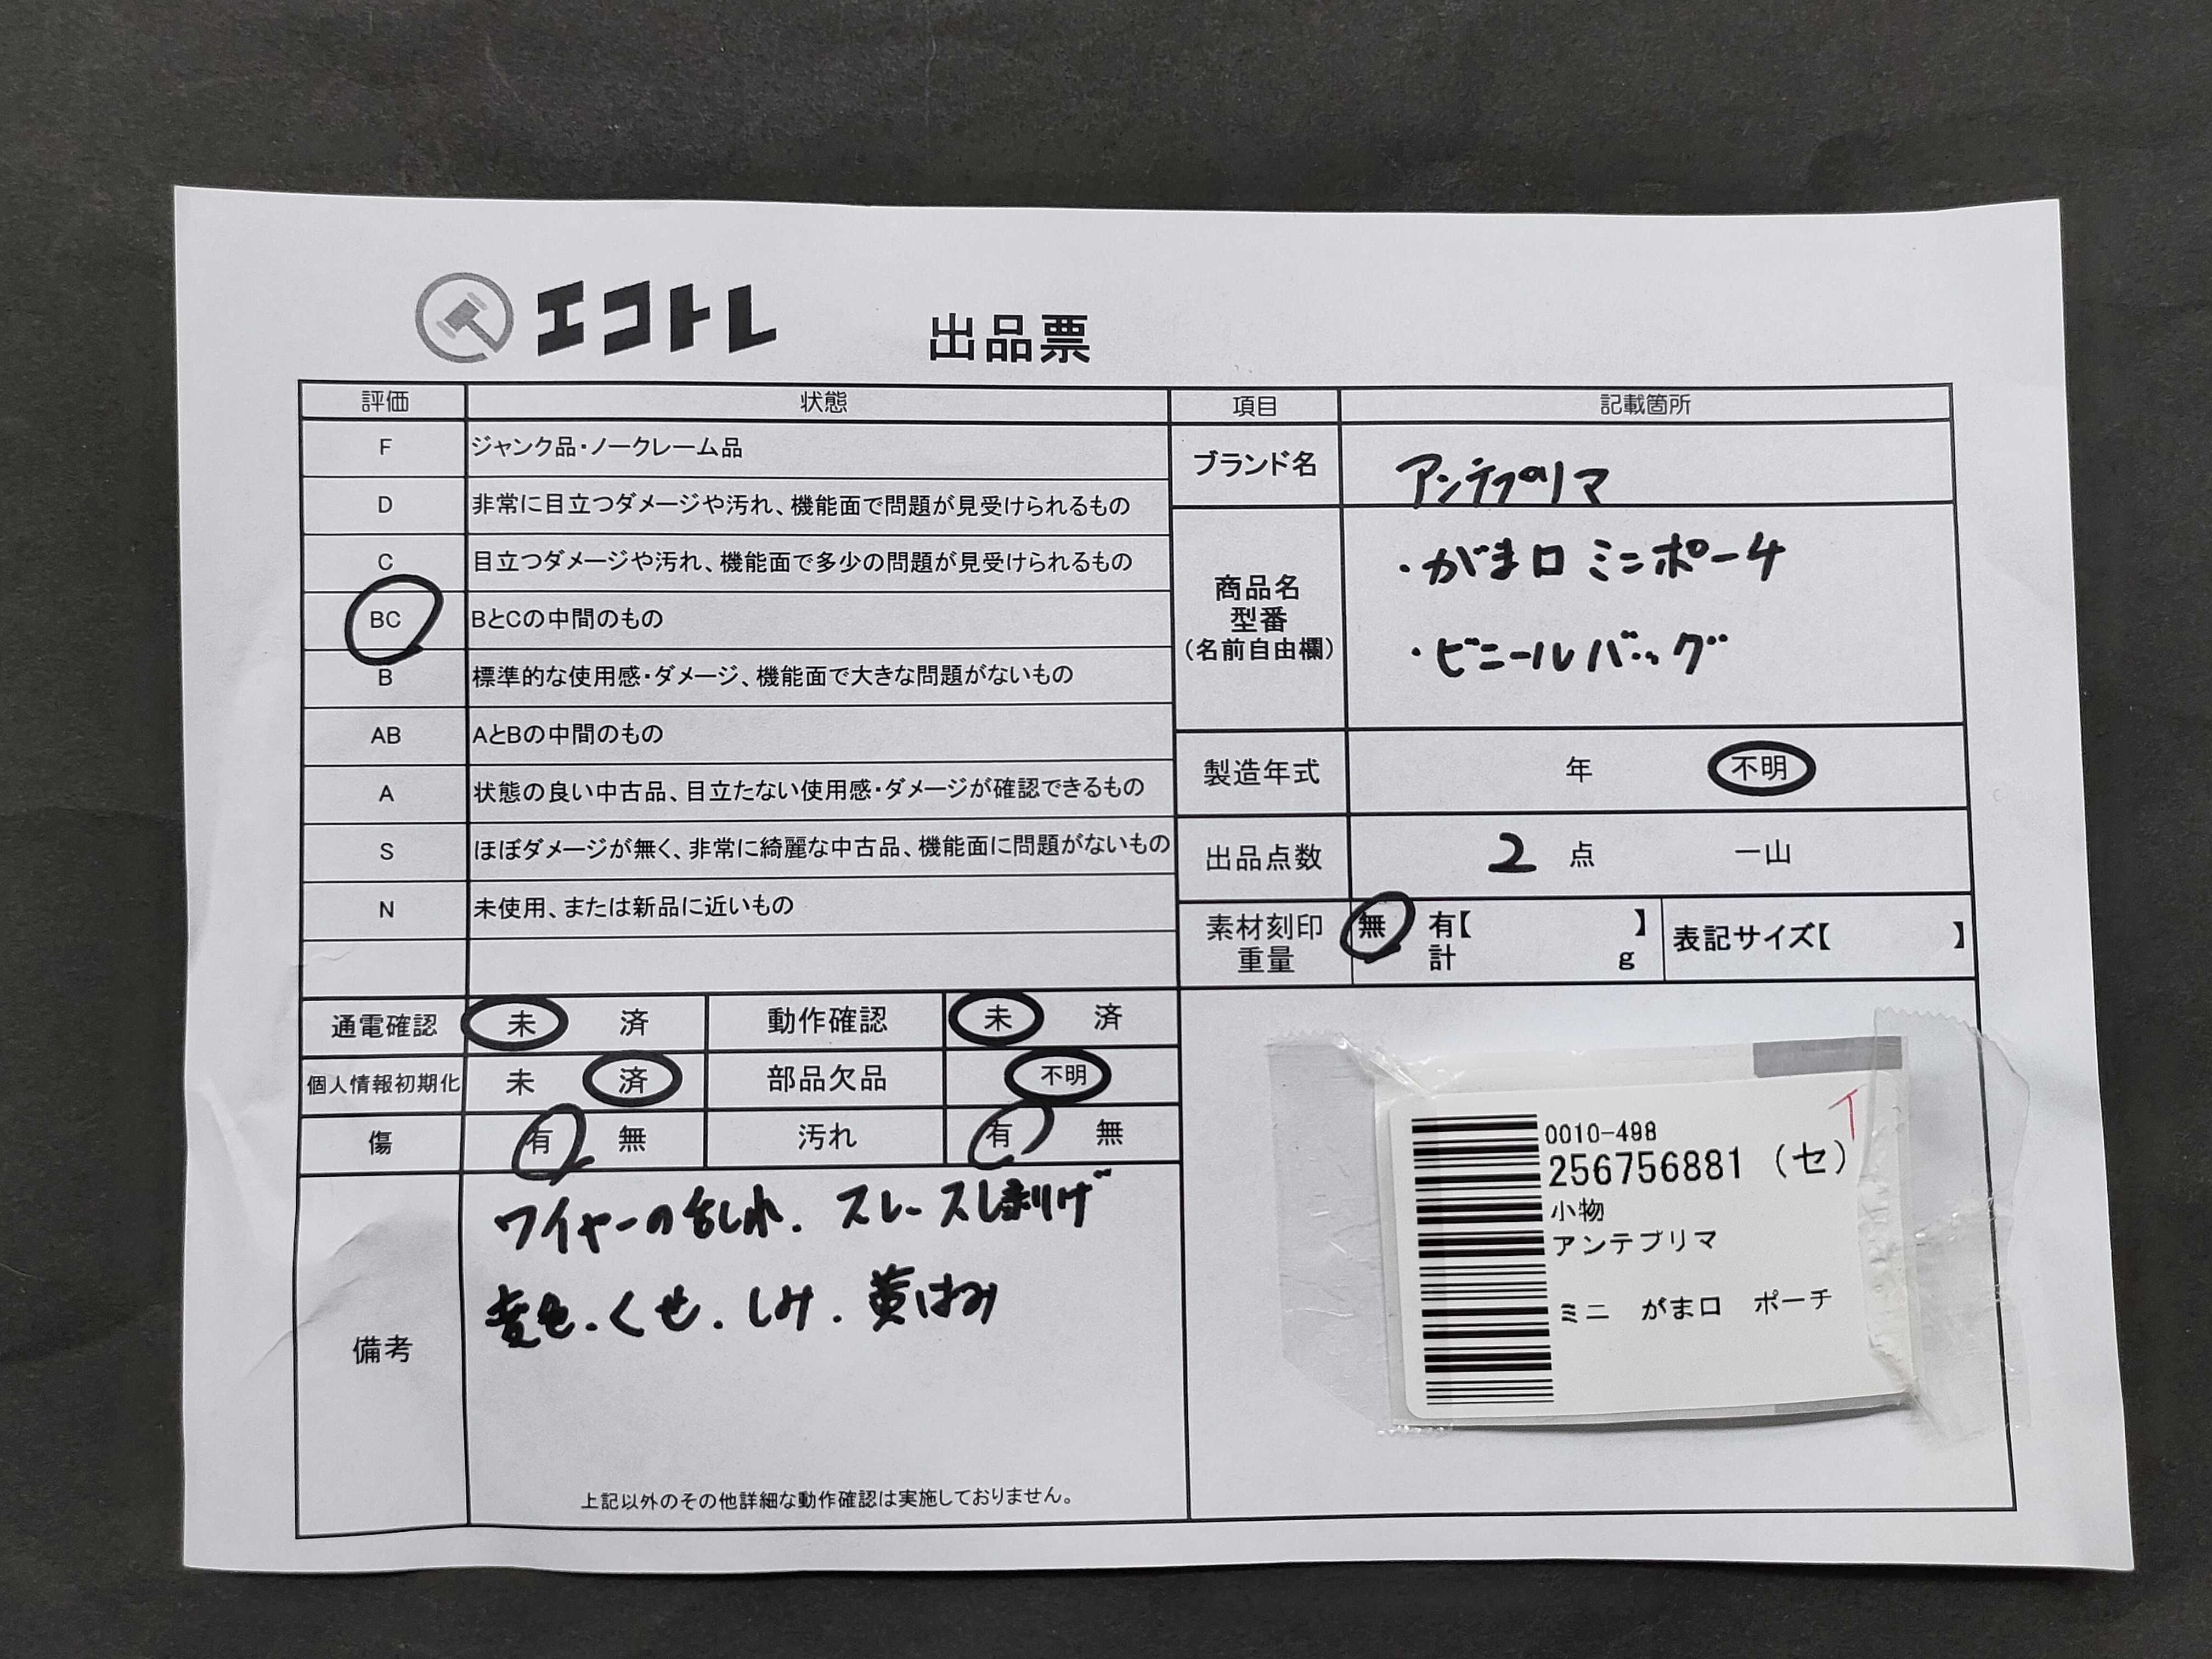 エコトレ 出品票
評価 状態
F ジャンク品・ノークレーム品
D 非常に目立つダメージや汚れ、機能面で問題が見受けられるもの
C 目立つダメージや汚れ、機能面で多少の問題が見受けられるもの
BC BとCの中間のもの
B 標準的な使用感・ダメージ、機能面で大きな問題がないもの
AB AとBの中間のもの
A 状態の良い中古品、目立たない使用感・ダメージが確認できるもの
S ほぼダメージが無く、非常に綺麗な中古品、機能面に問題がないもの
N 未使用、または新品に近いもの
通電確認 未 済 動作確認 未 済
個人情報初期化 未 済 部品欠品 不明
傷 有 無 汚れ 有 無
備考
ワイヤーの乱れ.スレースレ剥げ
変色.くせ.しみ.黄ばみ
上記以外のその他詳細な動作確認は実施しておりません。
項目 記載箇所
ブランド名 アンテプリマ
商品名
型番
(名前自由欄)
・がま口 ミニポーチ
・ビニールバッグ
製造年式 年 不明
出品点数 2 点 一山
素材刻印 無 有【 】 表記サイズ【 】
重量 計 g
0010-498
256756881 (セ)
小物
アンテプリマ
ミニ がま口 ポーチ